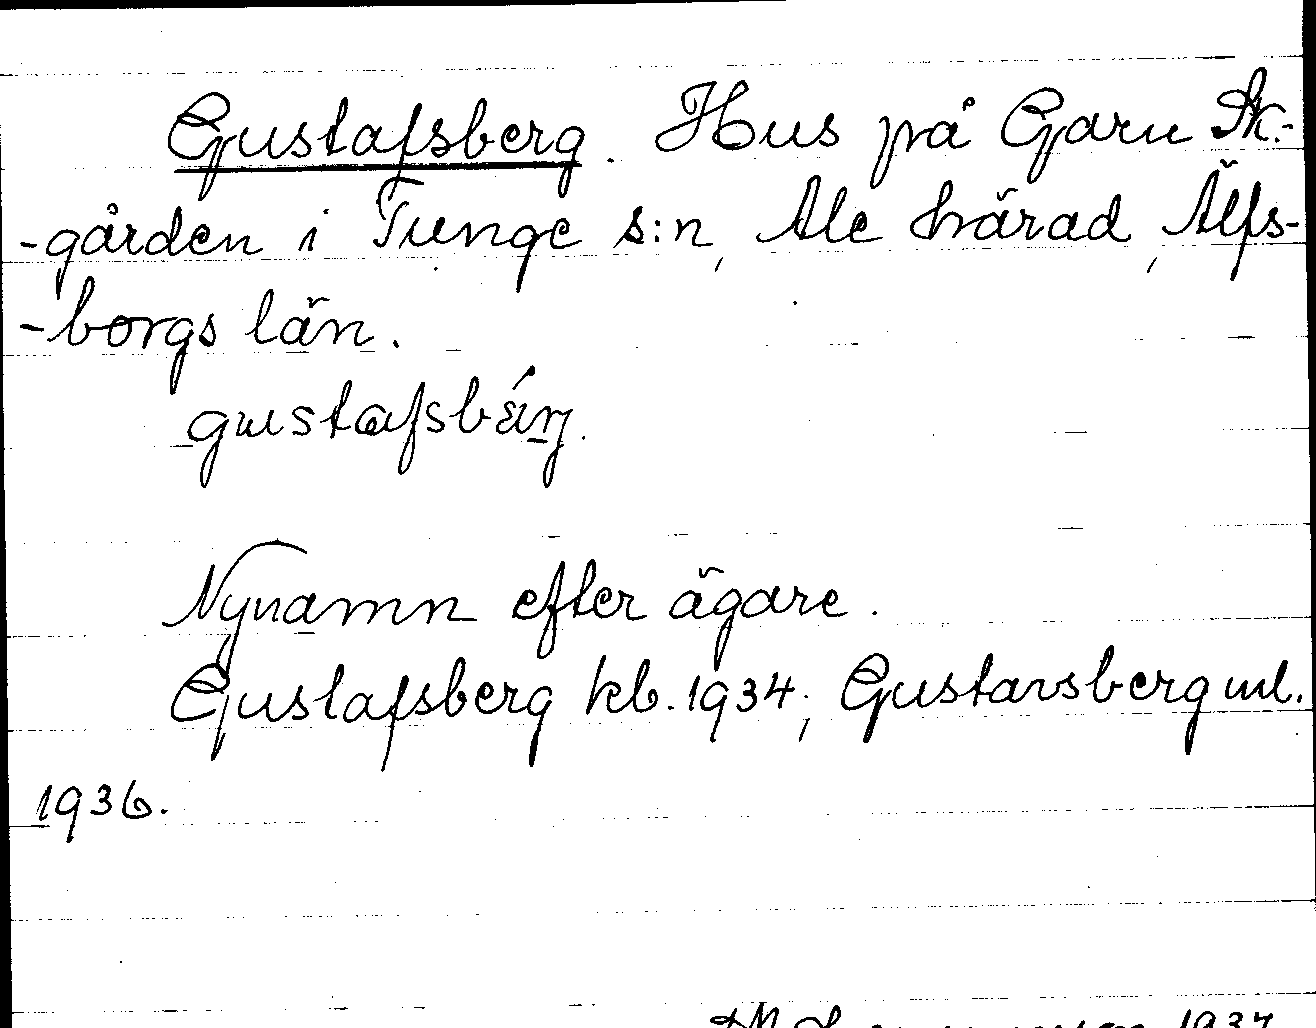 Gustafsberg. Hus på Garn Sk.-
-gården i Tunge s:n, Ale härad, Älfs-
-borgs län.
Nynamn efter ägare.
Gustafsberg kb. 1934; Gustavsberg ml.
1936.
1937